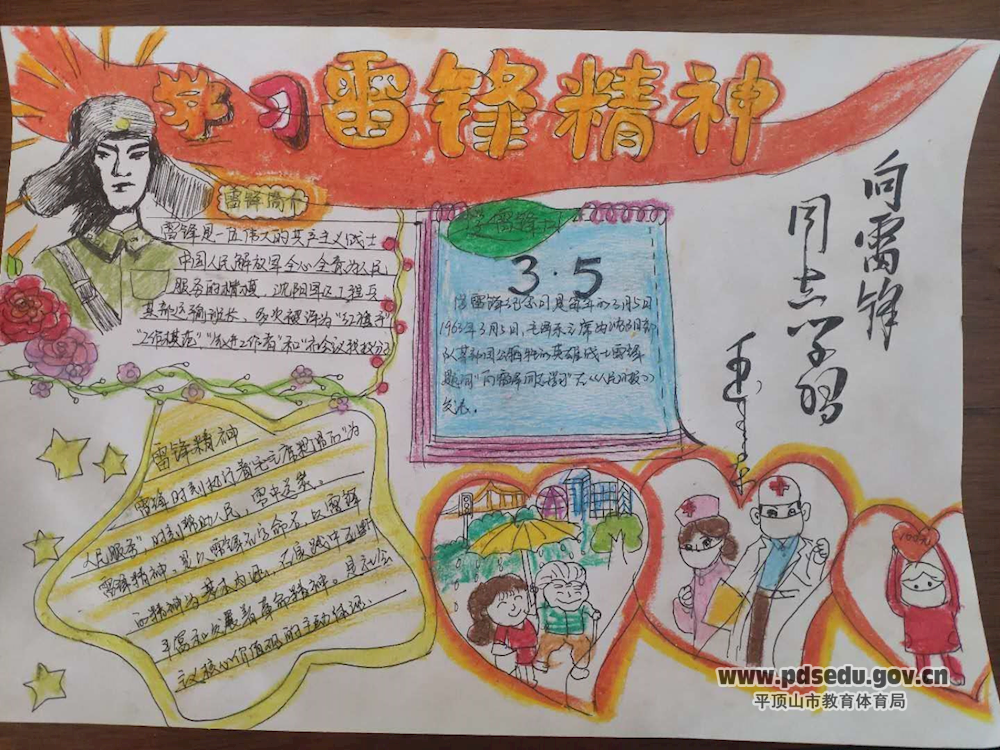 学习雷锋精神
雷锋简介
雷锋是一位伟大的共产主义战士
中国人民解放军全心全意为人民
服务的楷模，沈阳军区工程兵
某部运输班长，多次被评为“红旗手”
“工作模范”
学雷锋日
3.5
学雷锋纪念日是每年的3月5日
1963年3月5日，毛泽东主席为
牺牲的英雄战士雷锋
题词“向雷锋同志学习”在《人民日报》
发表。
向雷锋
同志学习
毛泽东
雷锋精神
雷锋时刻执行着毛主席提道的“为
人民服务”，时刻帮助人民，雪中送炭。
雷锋精神，是以雷锋的名命名，以雷锋
的精神为基本内涵，在实践中不断
丰富和发展着革命精神。是社会
义核心价值观的生动体现。
100元
www.pdsedu.gov.cn
平顶山市教育体育局